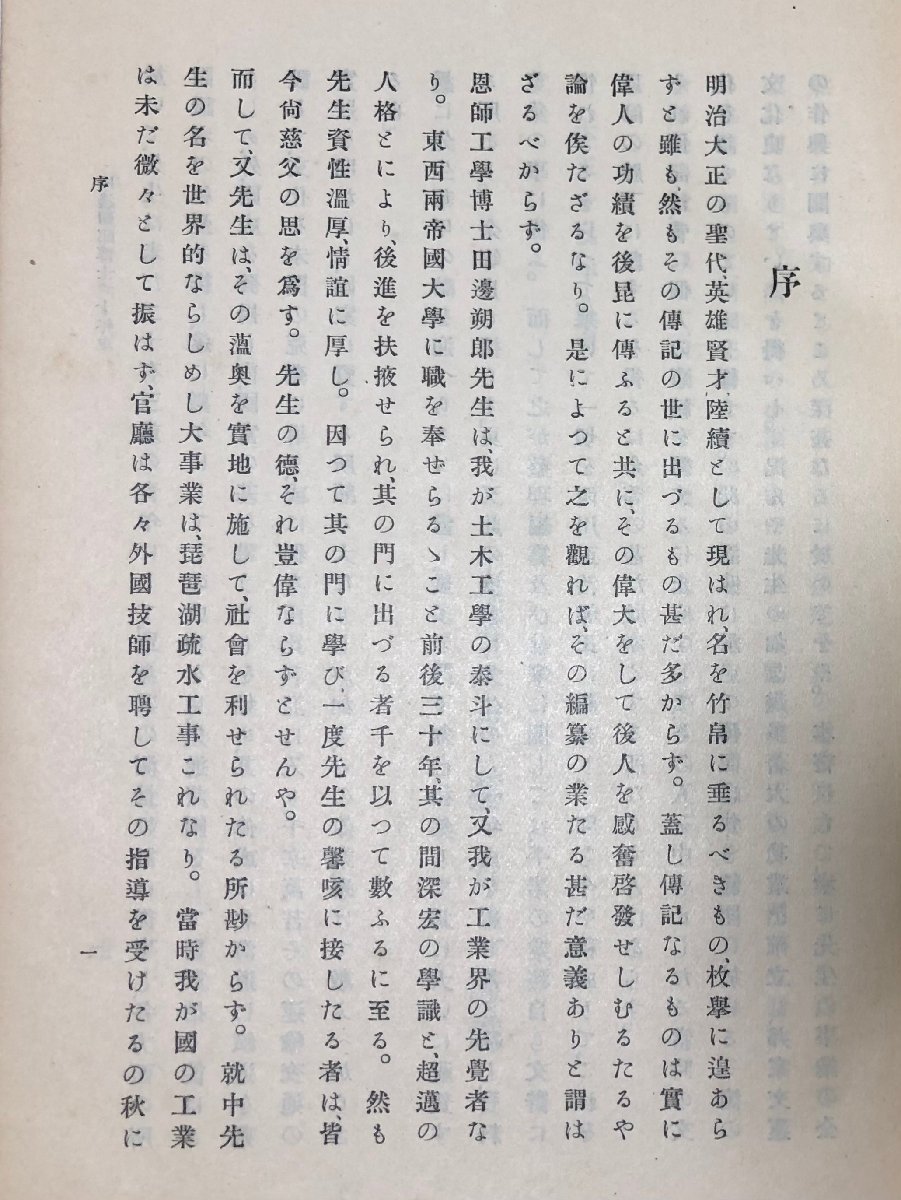 序
明治大正の聖代、英雄賢才陸續として現はれ、名を竹帛に垂るべきもの、枚擧に遑あら
ずと雖も、然もその傳記の世に出づるもの甚だ多からず。蓋し傳記なるものは實に
偉人の功績を後昆に傳ふると共に、その偉大をして後人を感奮啓發せしむるたるや
論を俟たざるなり。是によつて之を觀れば、その編纂の業たる甚だ意義ありと謂は
ざるべからず。
恩師工學博士田邊朔郎先生は、我が土木工學の泰斗にして、又我が工業界の先覺者な
り。東西兩帝國大學に職を奉ぜらるゝこと前後三十年、其の間深宏の學識と、超邁の
人格とにより、後進を扶掖せられ、其の門に出づる者千を以つて數ふるに至る。然も
先生資性溫厚、情誼に厚し。因つて其の門に學び、一度先生の馨咳に接したる者は、皆
今尙慈父の思を爲す。先生の德、それ豈偉ならずとせんや。
而して、又先生は、その薀奧を實地に施して、社會を利せられたる所尠からず。就中先
生の名を世界的ならしめし大事業は、琵琶湖疏水工事これなり。當時我が國の工業
は未だ微々として振はず、官廳は各々外國技師を聘してその指導を受けたるの秋に
序
一